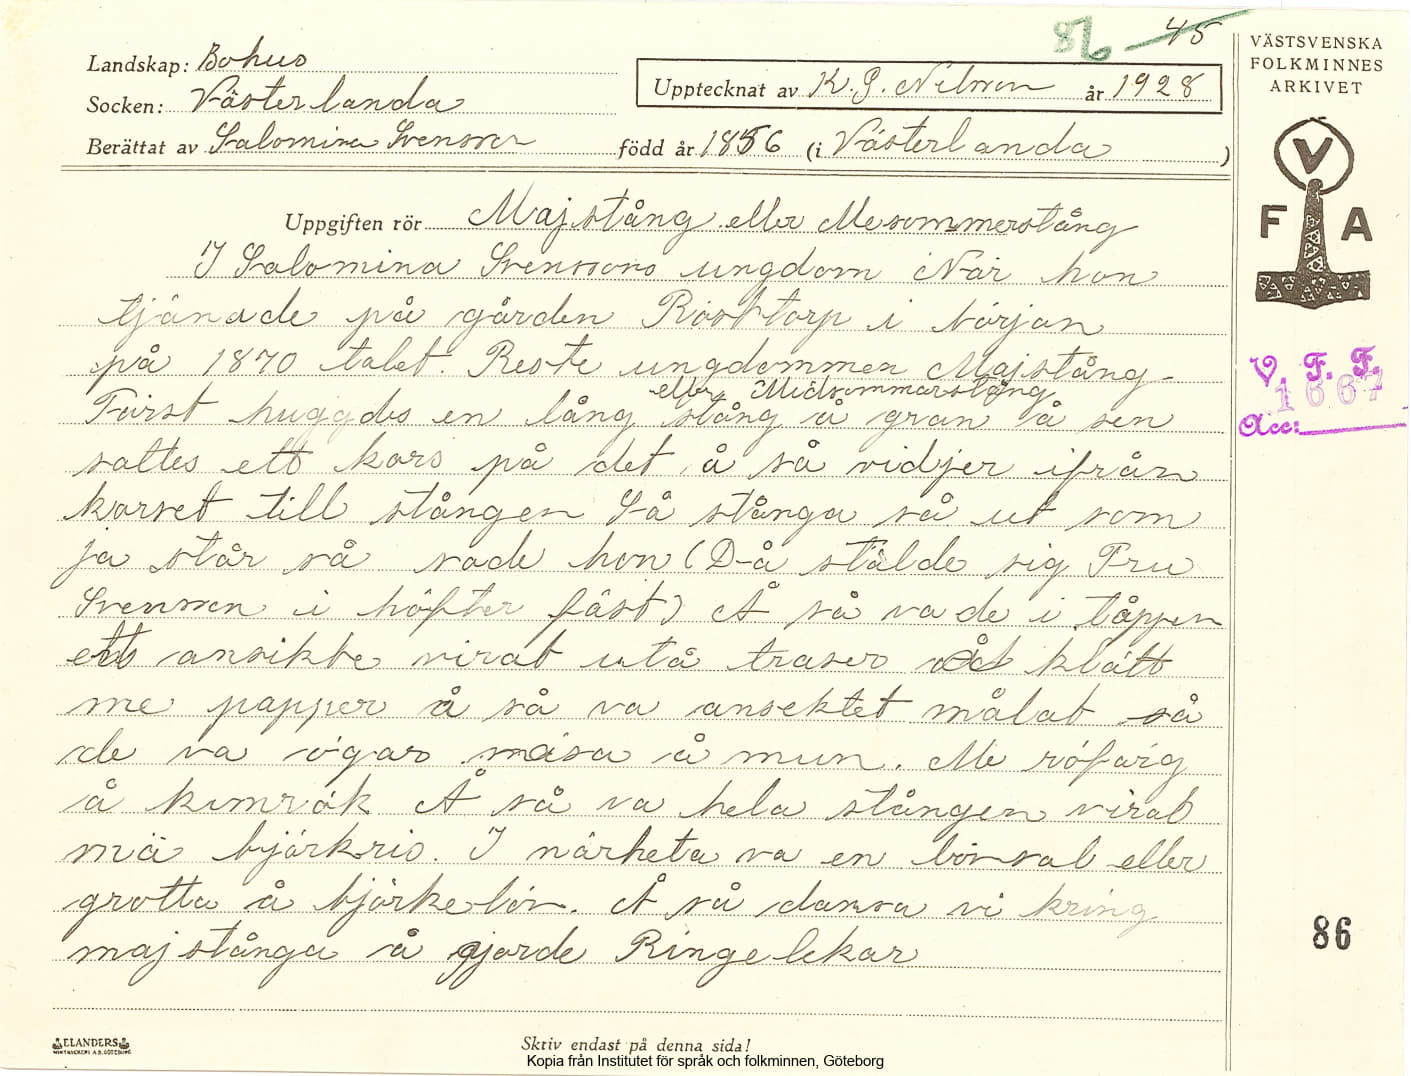 86 45
Landskap: Bohus
Socken: Västerlanda
Upptecknat av K. G. Nilsson år 1928
Berättat av Salomina Svensson född år 1856 (i Västerlanda )
Uppgiften rör Majstång eller Mesommerstång
I Salomina Svenssons ungdom När hon
tjänade på gården Röstorp i början
på 1870 talet. Reste ungdommen Majstång
eller Midsommarstång
Först huggdes en lång stång å gran å sen
sattes ett kors på det å så vidjer ifrån
korset till stången Så stånga så ut som
ja står så sade hon (Då stälde sig Fru
Svensson i höfter fäst) Å så va de i tåppen
ett ansikte virat utå traser klätt
me papper å så va ansektet målat så
de va ögar näsa å mun. Me röfärg
å kimrök Å så va hela stången virat
mä björkris. I närheta va en lövsal eller
grotta å björkelöv. Å så dansa vi kring
majstånga å gjorde Ringelekar
ELANDERS
BOKTRYCKERI A.B. GÖTEBORG
Skriv endast på denna sida!
Kopia från Institutet för språk och folkminnen, Göteborg
VÄSTSVENSKA
FOLKMINNES
ARKIVET
V
F A
V. F. F.
1667
Acc:
86